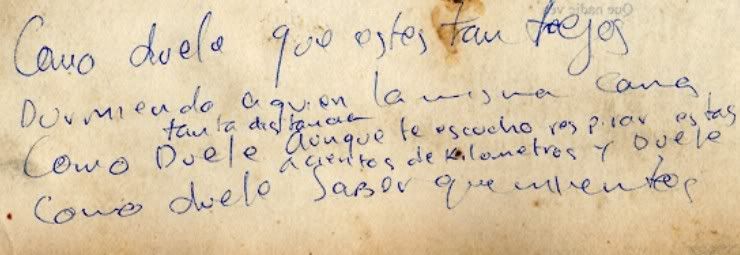 Como duele que estes tan lejos
Durmiendo aqui en la misma cama
tanta distancia
Como Duele Aunque te escucho respirar estas
a cientos de kilometros y Duele
Como duele Saber que mientes